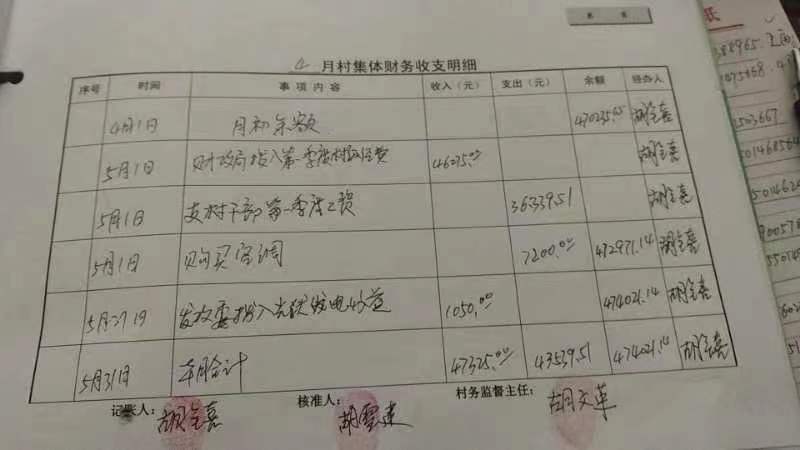 月村集体财务收支明细
序号 时间 事项内容 收入(元) 支出(元) 余额 经办人
4月1日 月初余额 470235.65 胡全喜
5月1日 财政局拨入第一季度村级经费 46275.00 胡全喜
5月1日 支村干部第一季度工资 36339.51 胡全喜
5月1日 购买空调 7200.00 472971.14 胡全喜
5月27日 发改委拨入光伏发电收益 1050.00 474021.14 胡全喜
5月31日 本月合计 47325.00 43539.51 474021.14 胡全喜
记账人: 胡全喜 核准人: 村务监督主任: 胡文革